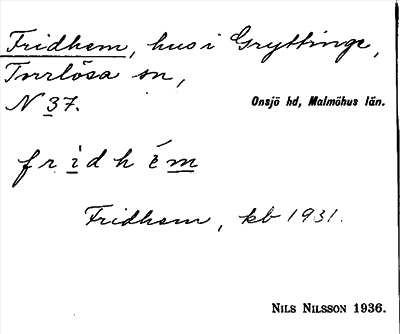 Fridhem, hus i Gryttinge,
Torrlösa sn,
N 37. Onsjö hd, Malmöhus län.
f r i d h é m
Fridhem, kb 1931.
NILS NILSSON 1936.